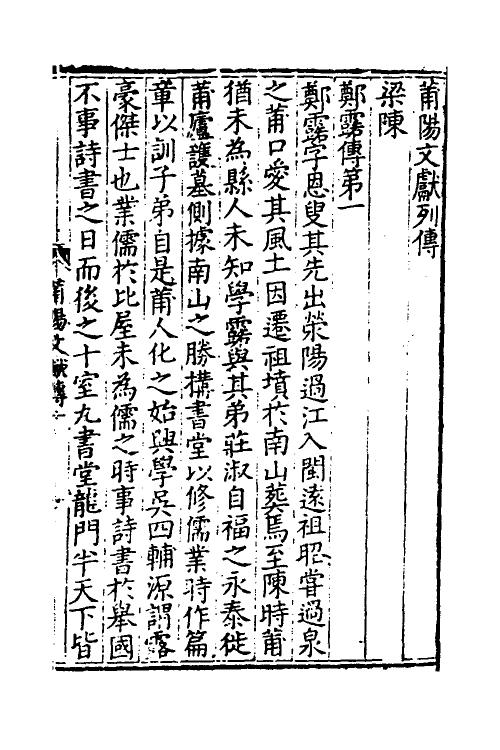 莆陽文獻列傳
梁陳
鄭露傳第一
鄭露字恩叟其先出滎陽過江入閩遠祖昭嘗過泉
之莆口愛其風土因遷祖墳於南山葬焉至陳時莆
猶未為縣人未知學露與其弟莊淑自福之永泰徙
莆廬護墓側據南山之勝構書堂以修儒業時作篇
章以訓子弟自是莆人化之始興學吳四輔源謂露
豪傑士也業儒於比屋未為儒之時事詩書於舉國
不事詩書之日而後之十室九書堂龍門半天下皆
莆陽文獻傳